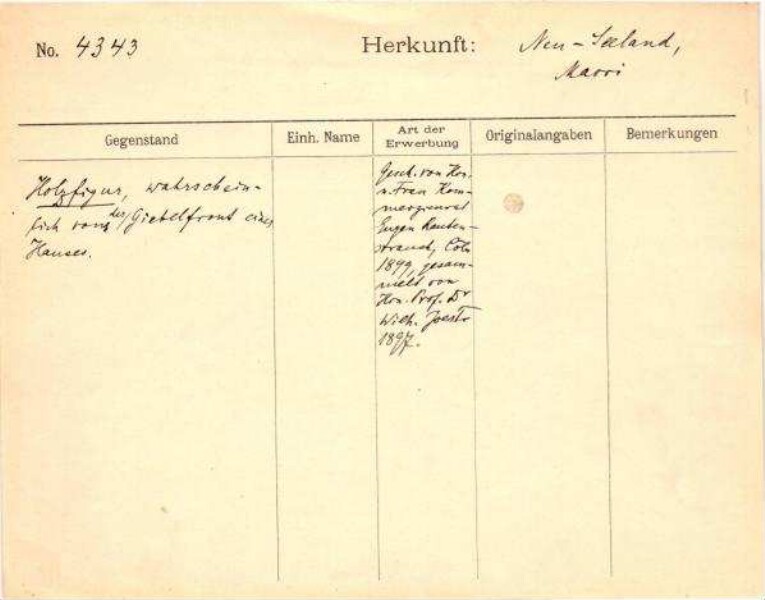 No. 4343
Herkunft: Neu-Seeland,
Maori
Gegenstand
Einh. Name
Art der
Erwerbung
Originalangaben
Bemerkungen
Holzfigur, wahrschein-
lich von der Giebelfront eines
Hauses.
Gesch. von Hrn.
u. Frau Kom-
merzienrat
Eugen Rauten-
strauch, Cöln
1899, gesam-
melt von
Hrn. Prof. Dr
Wilh. Joest
1897.